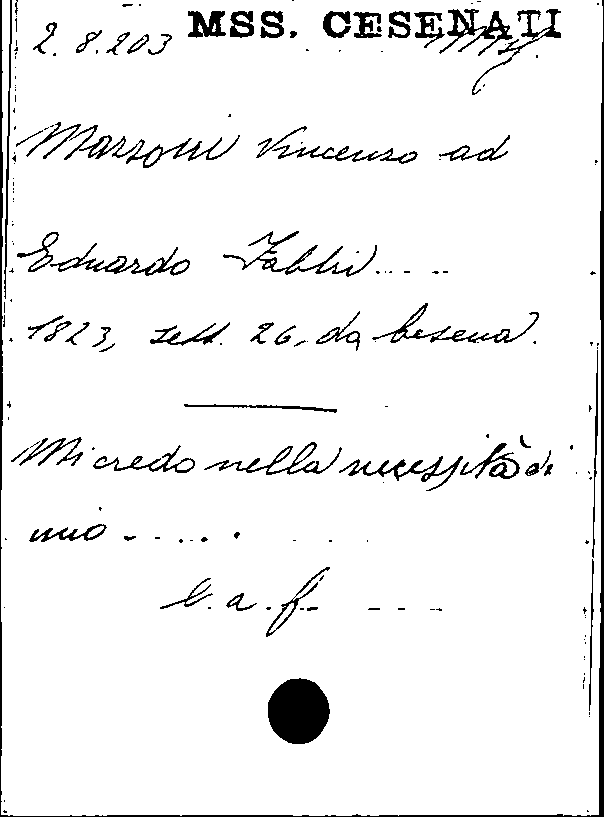 MSS. CESENATI
2.8.203
Mazzoni Vincenzo ad
Eduardo Fabbri.....
1823, sett. 26, da Cesena.
Mi credo nella necessità di
mio ......
C. a. f. ---